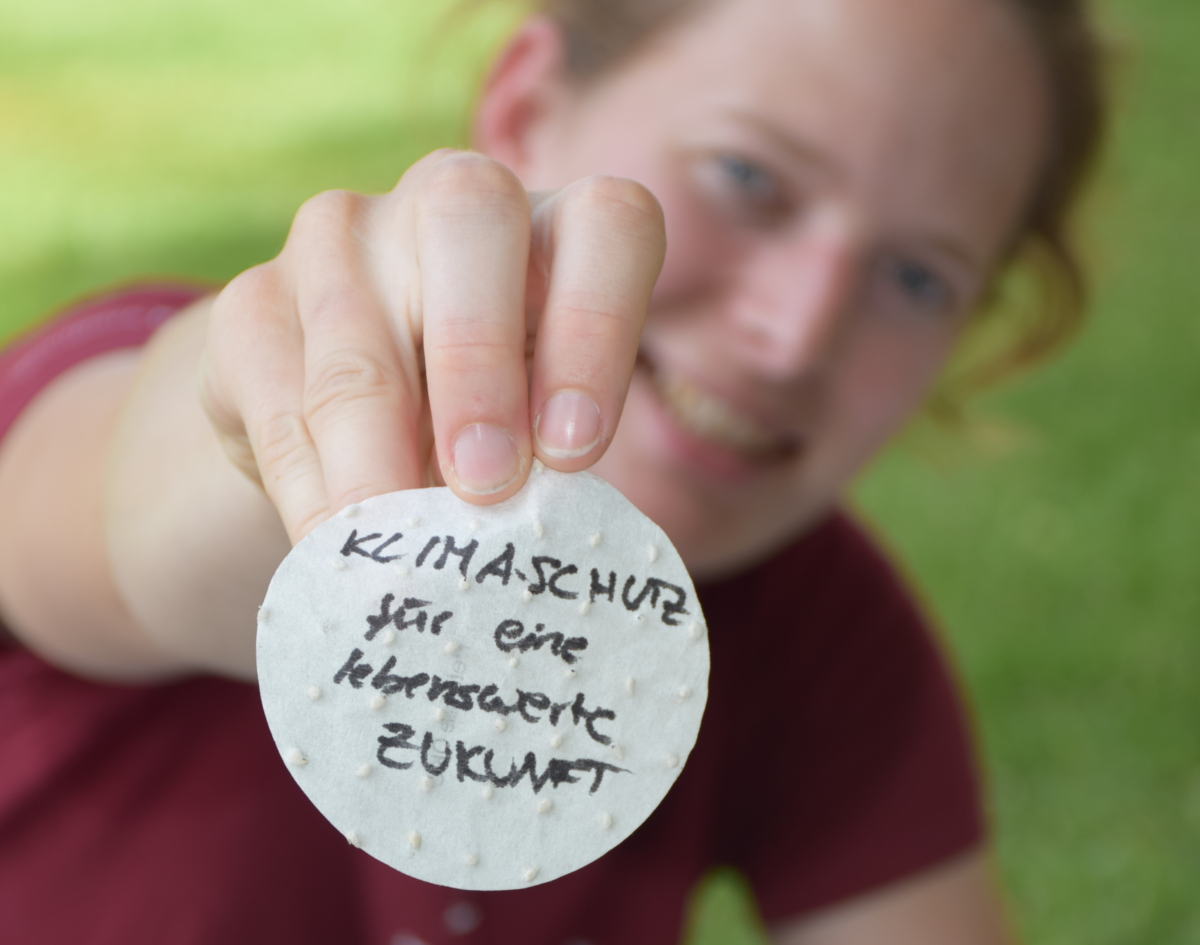 KLIMASCHUTZ
für eine
lebenswerte
ZUKUNFT